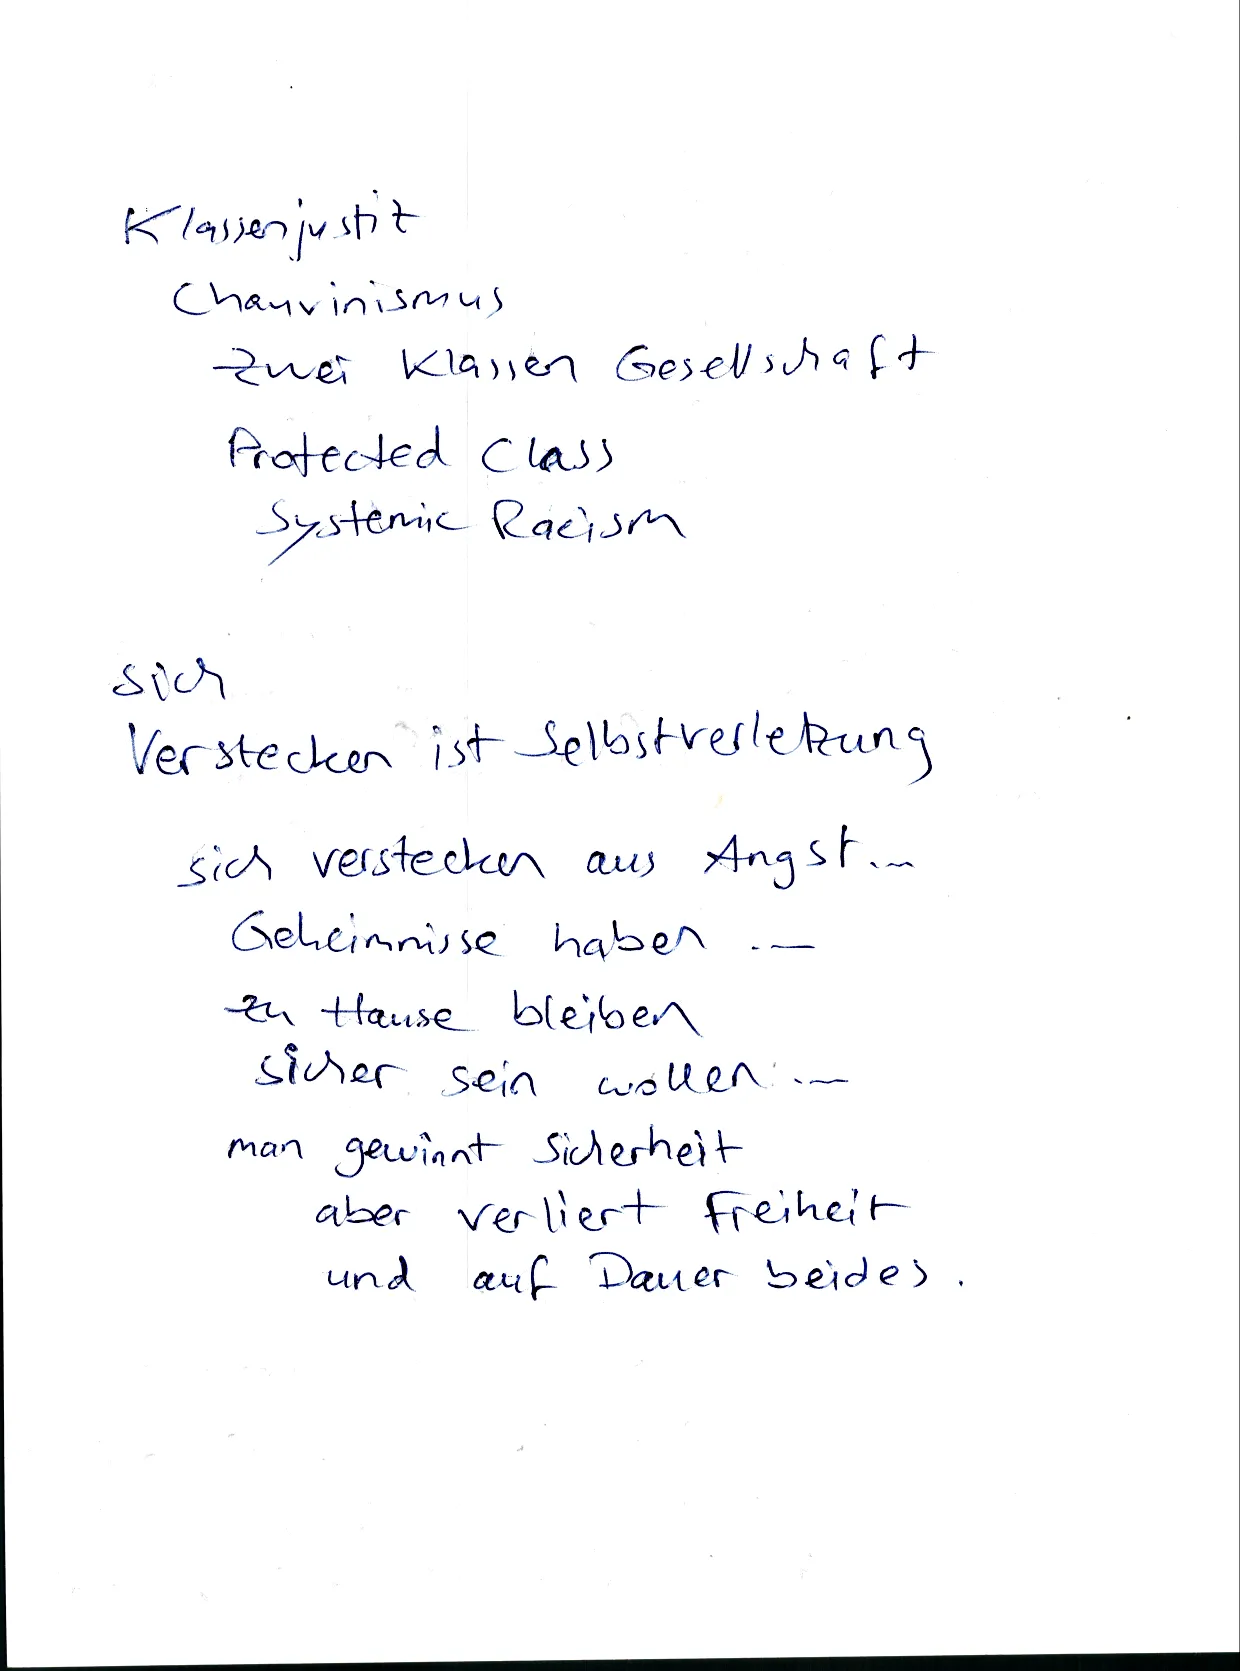 Klassenjustiz
Chauvinismus
Zwei Klassen Gesellschaft
Protected Class
Systemic Racism
sich
Verstecken ist Selbstverletzung
sich verstecken aus Angst...
Geheimnisse haben ...
zu Hause bleiben
sicher sein wollen ...
man gewinnt Sicherheit
aber verliert Freiheit
und auf Dauer beides.